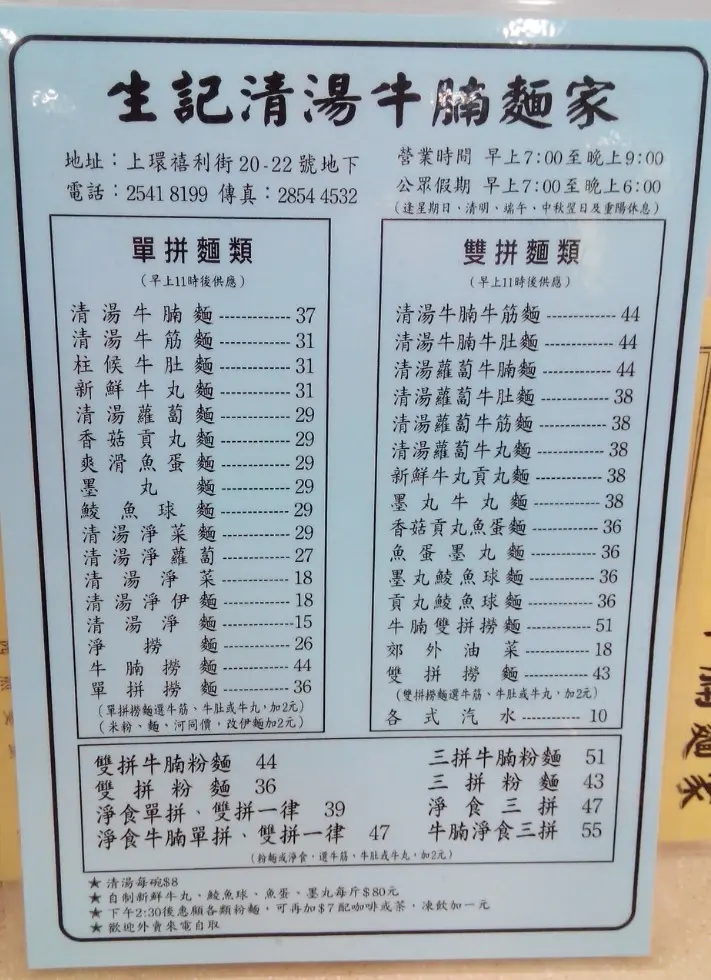 生記清湯牛腩麵家
地址：上環禧利街20-22號地下
電話：2541 8199 傳真：2854 4532
營業時間 早上7:00至晚上9:00
公眾假期 早上7:00至晚上6:00
（逢星期日、清明、端午、中秋翌日及重陽休息）
單拼麵類
（早上11時後供應）
清湯牛腩麵 ------------ 37
清湯牛筋麵 ------------ 31
柱候牛肚麵 ------------ 31
新鮮牛丸麵 ------------ 31
清湯蘿蔔麵 ------------ 29
香菇貢丸麵 ------------ 29
爽滑魚蛋麵 ------------ 29
墨丸麵 ------------ 29
鯪魚球麵 ------------ 29
清湯淨菜麵 ------------ 29
清湯淨蘿蔔 ------------ 27
清湯淨菜 ------------ 18
清湯淨伊麵 ------------ 18
清湯淨麵 ------------ 15
淨撈麵 ------------ 26
牛腩撈麵 ------------ 44
單拼撈麵 ------------ 36
（單拼撈麵選牛筋、牛肚或牛丸，加2元）
（米粉、麵、河同價，改伊麵加2元）
雙拼麵類
（早上11時後供應）
清湯牛腩牛筋麵 ------------ 44
清湯牛腩牛肚麵 ------------ 44
清湯蘿蔔牛腩麵 ------------ 44
清湯蘿蔔牛肚麵 ------------ 38
清湯蘿蔔牛筋麵 ------------ 38
清湯蘿蔔牛丸麵 ------------ 38
新鮮牛丸貢丸麵 ------------ 38
墨丸牛丸麵 ------------ 38
香菇貢丸魚蛋麵 ------------ 36
魚蛋墨丸麵 ------------ 36
墨丸鯪魚球麵 ------------ 36
貢丸鯪魚球麵 ------------ 36
牛腩雙拼撈麵 ------------ 51
郊外油菜 ------------ 18
雙拼撈麵 ------------ 43
（雙拼撈麵選牛筋、牛肚或牛丸，加2元）
各式汽水 ------------ 10
雙拼牛腩粉麵 44
雙拼粉麵 36
淨食單拼、雙拼一律 39
淨食牛腩單拼、雙拼一律 47
三拼牛腩粉麵 51
三拼粉麵 43
淨食三拼 47
牛腩淨食三拼 55
（粉麵或淨食，選牛筋、牛肚或牛丸，加2元）
★ 清湯每碗$8
★ 自制新鮮牛丸、鯪魚球、魚蛋、墨丸每斤$80元
★ 下午2:30後惠顧各類粉麵，可再加$7配咖啡或茶，凍飲加一元
★ 歡迎外賣來電自取
麵家